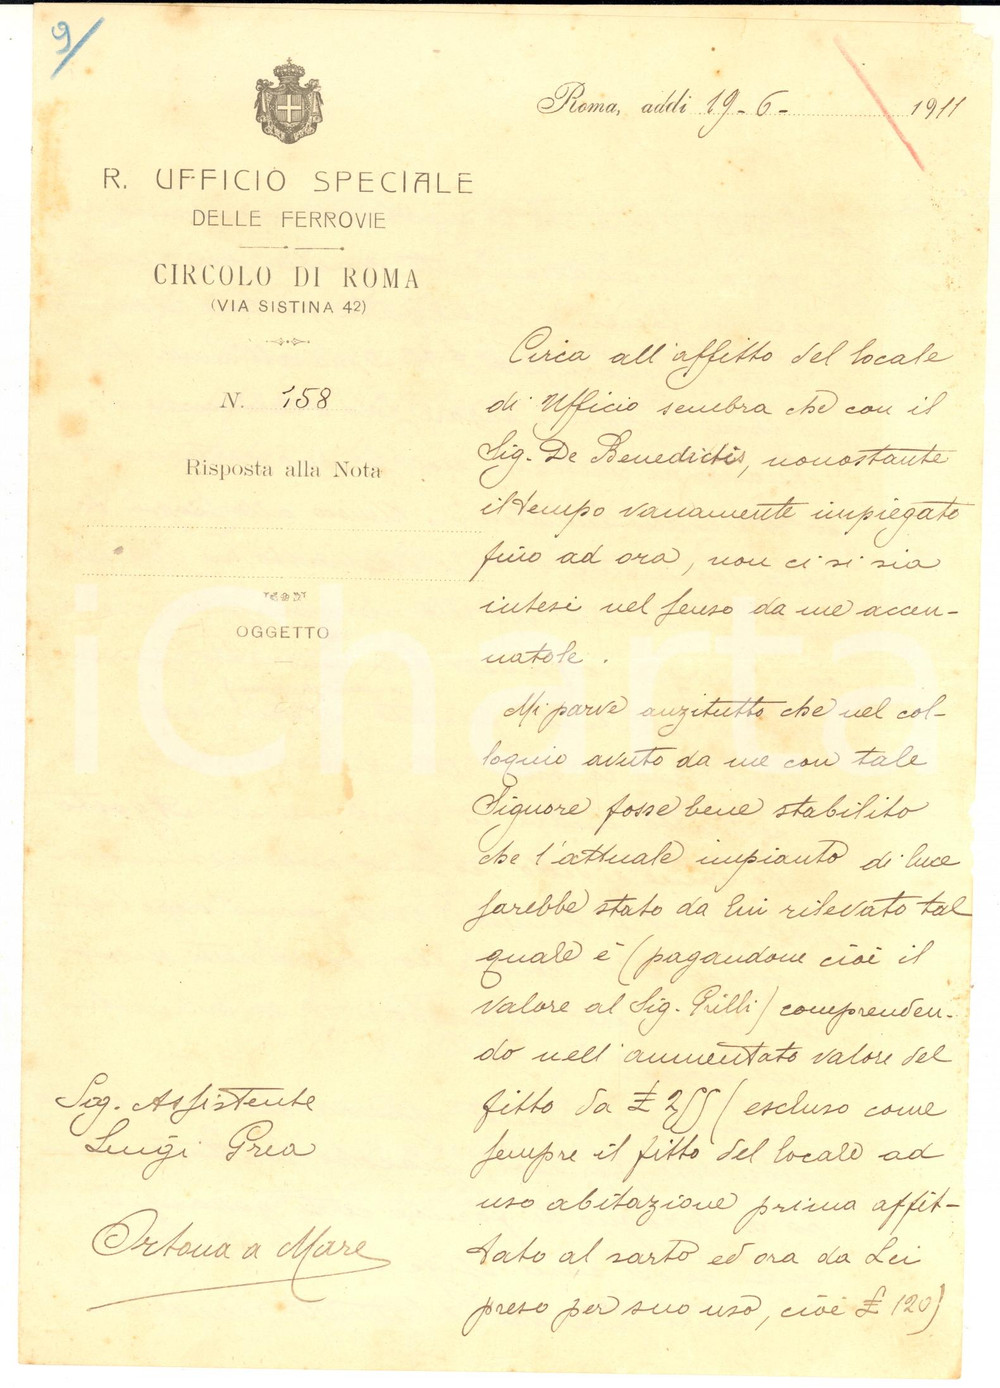 9/
Roma, addì 19-6- 1911
R. UFFICIO SPECIALE
DELLE FERROVIE
CIRCOLO DI ROMA
(VIA SISTINA 42)
N. 158
Risposta alla Nota
OGGETTO
Circa all'affitto del locale
di Ufficio sembra che con il
Sig. De Benedictis, nonostante
il tempo vanamente impiegato
fino ad ora, non ci si sia
intesi nel senso da me accen-
natole.
Mi parve anzitutto che nel col-
loquio avuto da me con tale
Signore fosse bene stabilito
che l'attuale impianto di luce
sarebbe stato da lui rilevato tal
quale è (pagandone cioè il
valore al Sig. Grilli) comprenden-
do nell'aumentato valore del
fitto da £ 255 (escluso come
sempre il fitto del locale ad
uso abitazione prima affit-
tato al sarto ed ora da Lei
preso per suo uso, cioè £ 120)
Sig. Assistente
Luigi Grea
Ortona a Mare
iCharta